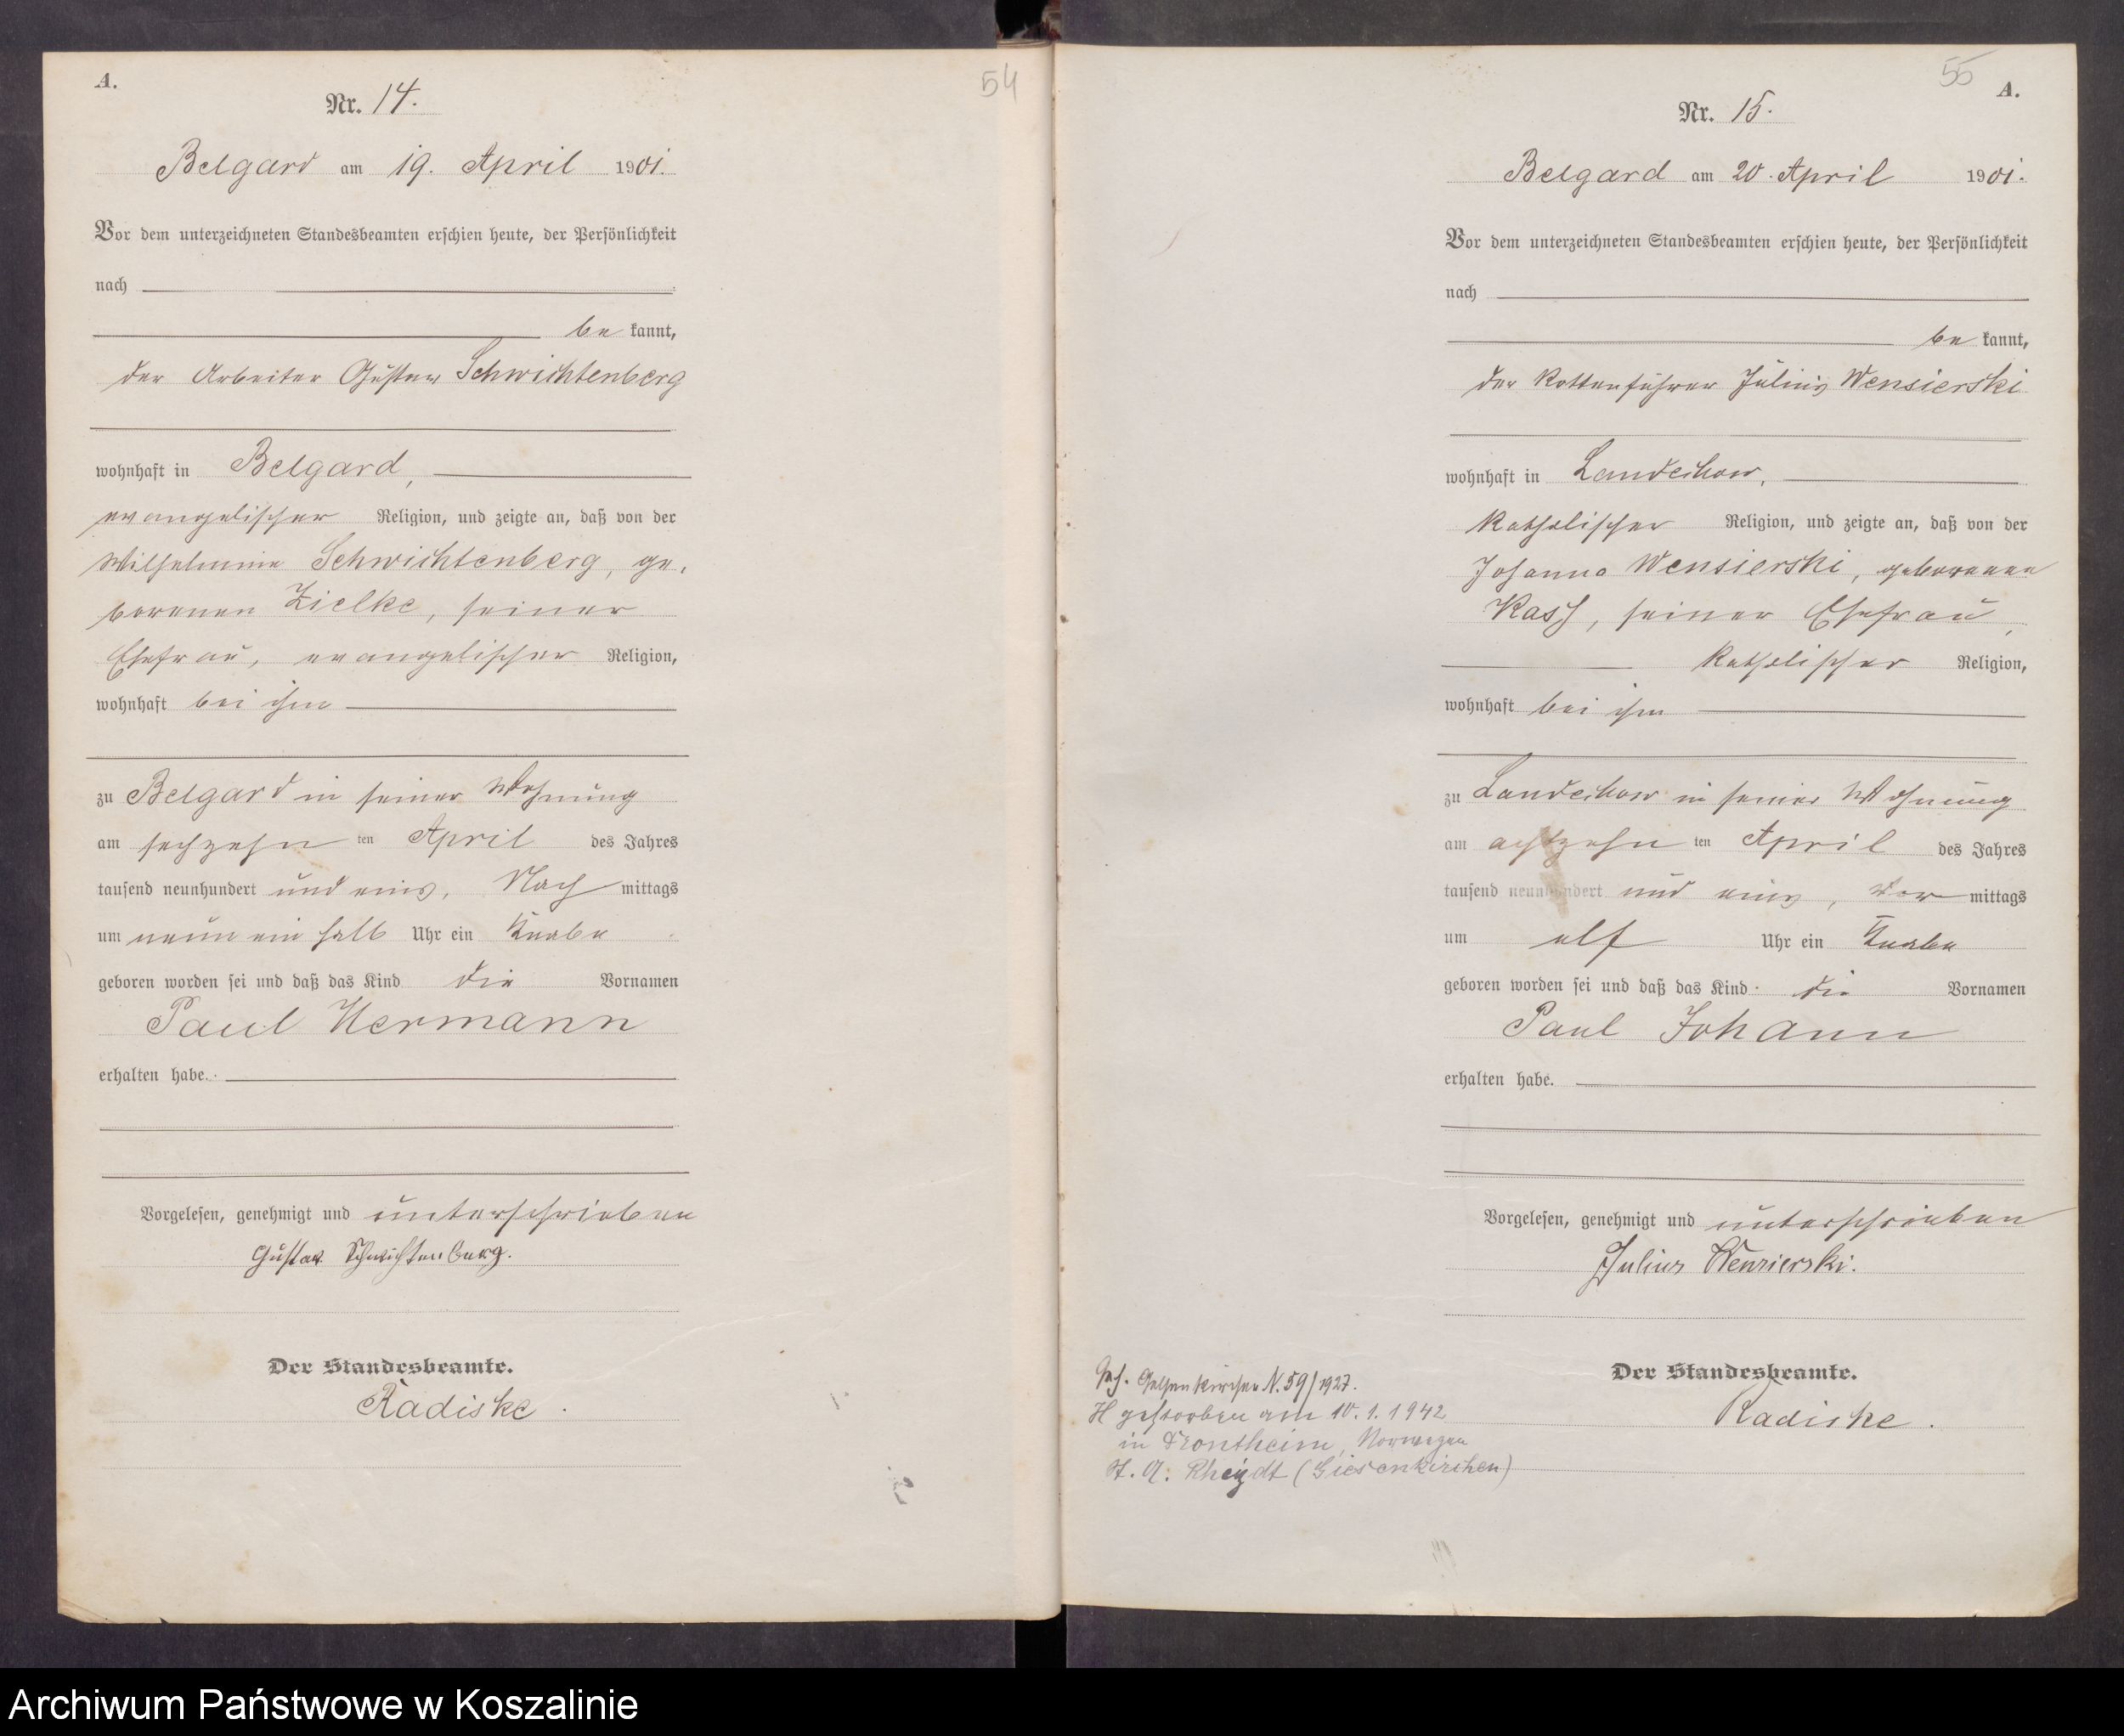 A.
54
Nr. 14.
Belgard am 19. April 1901.
Vor dem unterzeichneten Standesbeamten erschien heute, der Persönlichkeit
nach
be kannt,
der Arbeiter Gustav Schwichtenberg
wohnhaft in Belgard,
evangelischer Religion, und zeigte an, daß von der
Wilhelmine Schwichtenberg, ge-
borenen Zielke, seiner
Ehefrau, evangelischer Religion,
wohnhaft bei ihm
zu Belgard in seiner Wohnung
am sechzehn ten April des Jahres
tausend neunhundert und eins, Nach mittags
um neun ein halb Uhr ein Knabe
geboren worden sei und daß das Kind die Vornamen
Paul Hermann
erhalten habe.
Vorgelesen, genehmigt und unterschrieben
Gustav Schwichtenberg.
Der Standesbeamte.
Radiske.
55
A.
Nr. 15.
Belgard am 20. April 1901.
Vor dem unterzeichneten Standesbeamten erschien heute, der Persönlichkeit
nach
be kannt,
der Rottenführer Julius Wensierski
wohnhaft in Landechow,
katholischer Religion, und zeigte an, daß von der
Johanna Wensierski, geborenen
Kass, seiner Ehefrau,
katholischer Religion,
wohnhaft bei ihm
zu Landechow in seiner Wohnung
am achtzehn ten April des Jahres
tausend neunhundert und eins, Vor mittags
um elf Uhr ein Knabe
geboren worden sei und daß das Kind die Vornamen
Paul Johann
erhalten habe.
Vorgelesen, genehmigt und unterschrieben
Julius Wensierski.
Der Standesbeamte.
Radiske.
Geh. Gelsenkirchen N. 59/1927.
H gestorben am 10.1.1942
in Drontheim, Norwegen
St. A. Rheydt (Giesenkirchen)
Archiwum Państwowe w Koszalinie